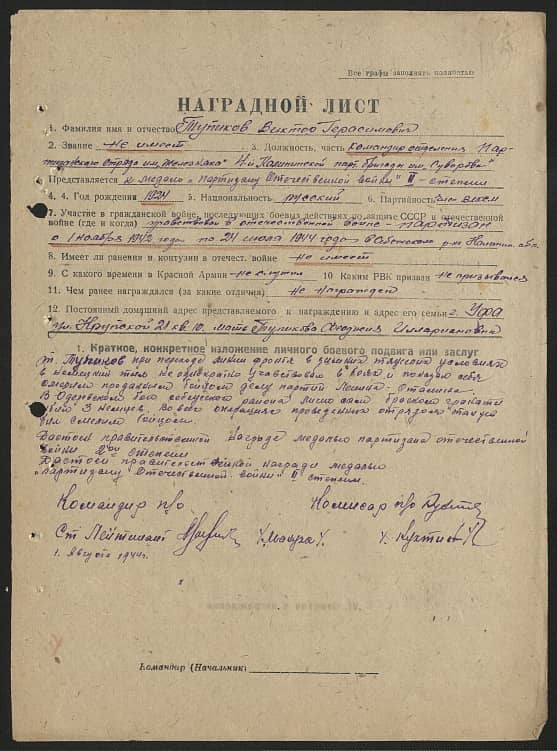 Все графы заполнять полностью
НАГРАДНОЙ ЛИСТ
1. Фамилия имя и отчество Тупиков Виктор Герасимович
2. Звание не имеет 3. Должность, часть командир отделения Пар-
тизанского отряда им. Железняка 4-й Калининской парт. бригады им. Суворова
Представляется к медали "партизану Отечественной войны" II - степени
4. 4. Год рождения 1924 5. Национальность русский 6. Партийность
7. Участие в гражданской войне, последующих боевых действиях по защите СССР и отечественной
войне (где и когда) в отечественной войне - партизан
с 1 ноября 1942 года по 24 июля 1944 года в р-не Калинин. обл.
8. Имеет ли ранения и контузии в отечест. войне не имеет
9. С какого времени в Красной Армии не служил 10 Каким РВК призван не призывался
11. Чем ранее награждался (за какие отличия) не награжден
12. Постоянный домашний адрес представляемого к награждению и адрес его семьи г. Уфа
ул. Крупской 21 кв. 10. мать Тупикова Илларионовна
1. Краткое, конкретное изложение личного боевого подвига или заслуг
т. Тупиков при переходе линии фронта в условиях
в немецкий тыл не однократно участвовал в боях и показал себя
смелым преданным бойцом делу партии Ленина - Сталина.
В бою района лично сам броском гранаты
убил 3 немцев. Во всех операциях проведенных отрядом т. Тупиков
был смелым бойцом.
Достоин правительственной награды медалью партизана отечественной
войны 2ой степени
Достоин правительственной награды медалью
"партизану Отечественной войны" II степени.
Командир п/о Комиссар п/о
Ст Лейтенант
1. Августа 1944 г.
Командир (Начальник)